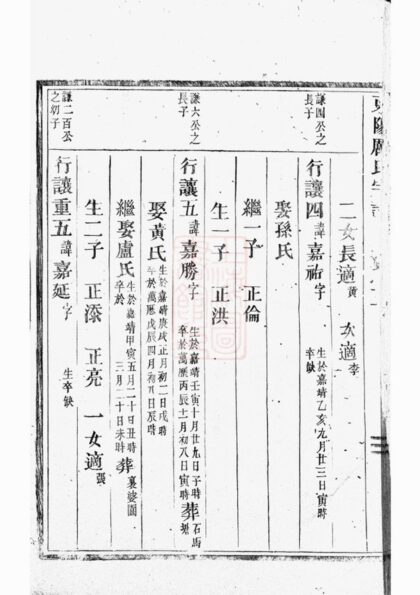 二女長適黃 次適李
謙四公之長子
行讓四諱嘉祐字 生於嘉靖乙亥九月廿三日寅時 卒缺
娶孫氏
繼一子 正倫
生一子 正洪
謙六公之長子
行讓五諱嘉勝字 生於嘉靖壬寅十月廿九日子時 卒於萬歷丙辰十一月初八日寅時 葬石馬
娶黃氏 生於嘉靖庚戌正月初二日戌時 卒於萬歷戊辰四月初八日辰時
繼娶盧氏 生於嘉靖甲寅五月二十日丑時 卒於 三月二十日未時 葬裏婆園
生二子 正添 正亮 一女適張
謙二百公之幼子
行讓重五諱嘉延字 生卒缺